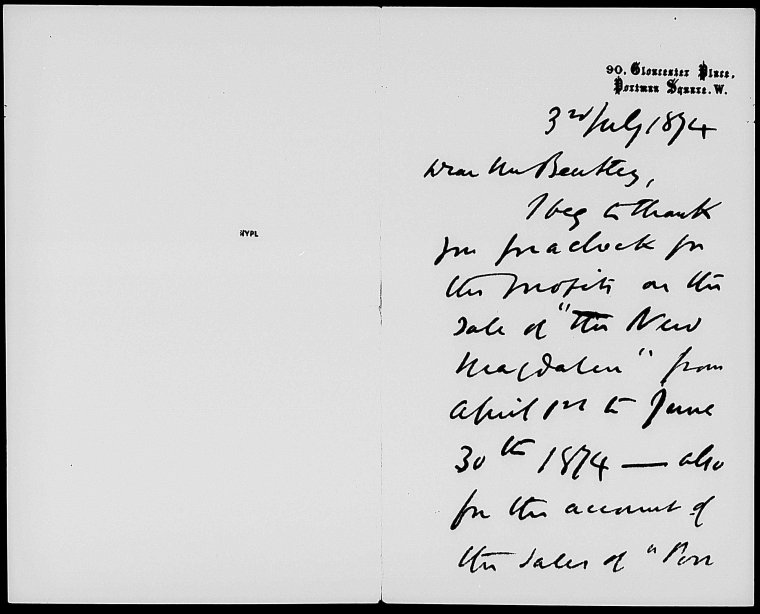 NYPL
90, Gloucester Place,
Portman Square. W.
3rd July 1874
Dear Mr Bentley,
I beg to thank
you for a check for
the profits on the
sale of "The New
Magdalen" from
April 1st to June
30th 1874 — also
for the account of
the sales of "Poor